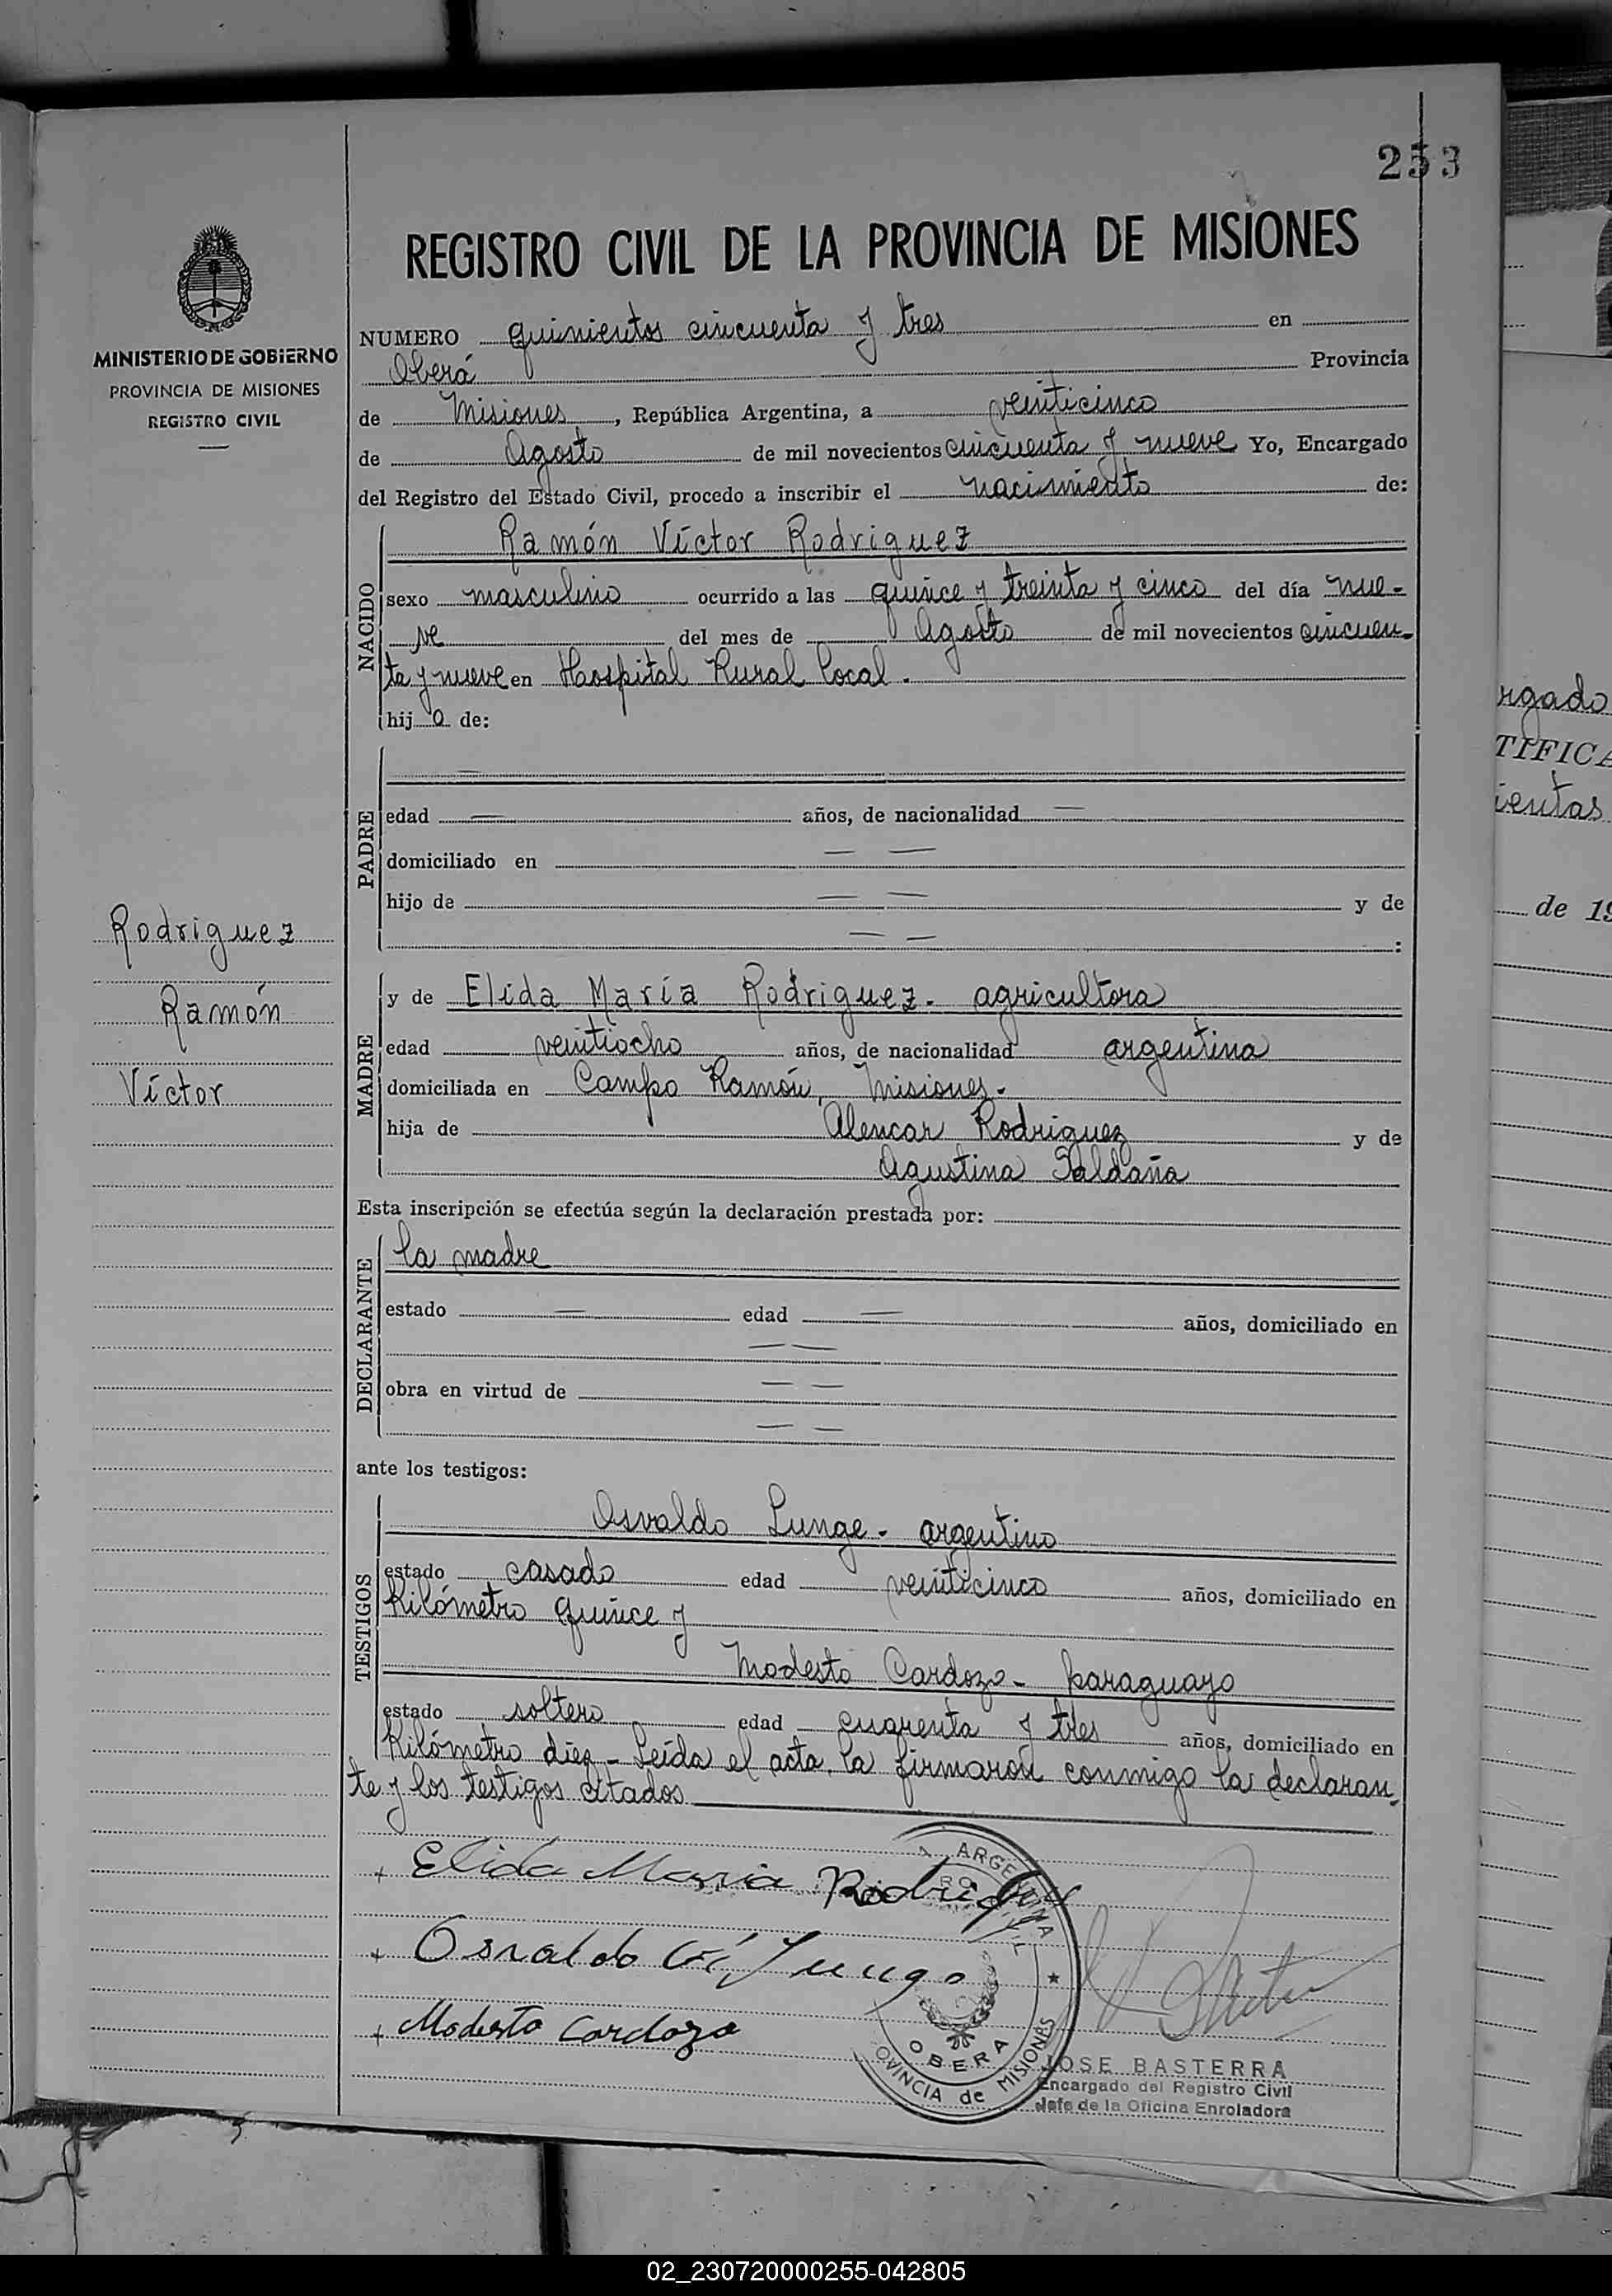 253
REGISTRO CIVIL DE LA PROVINCIA DE MISIONES
MINISTERIO DE GOBIERNO
PROVINCIA DE MISIONES
REGISTRO CIVIL
NUMERO quinientos cincuenta y tres en
Oberá Provincia
de Misiones, República Argentina, a veinticinco
de Agosto de mil novecientos cincuenta y nueve Yo, Encargado
del Registro del Estado Civil, procedo a inscribir el nacimiento de:
NACIDO
Ramón Víctor Rodriguez
sexo masculino ocurrido a las quince y treinta y cinco del día nue-
ve del mes de Agosto de mil novecientos cincuen-
ta y nueve en Hospital Rural local.
hijo de:
PADRE
—
edad — años, de nacionalidad —
domiciliado en — —
hijo de — — y de
— — :
Rodriguez
Ramón
Víctor
MADRE
y de Elida María Rodriguez - agricultora
edad veintiocho años, de nacionalidad argentina
domiciliada en Campo Ramón, Misiones.
hija de Alencar Rodriguez y de
Agustina Saldaña
Esta inscripción se efectúa según la declaración prestada por:
DECLARANTE
la madre
estado — edad — años, domiciliado en
— —
obra en virtud de — —
— —
ante los testigos:
TESTIGOS
Osvaldo Lunge - argentino
estado casado edad veinticinco años, domiciliado en
Kilómetro quince y
Modesto Cardozo - paraguayo
estado soltero edad cuarenta y tres años, domiciliado en
Kilómetro diez - Leída el acta, la firmaron conmigo la declaran-
te y los testigos citados
+ Elida Maria Rodriguez
+ Osvaldo
+ Modesto Cardozo
ARGENTINA
OBERA
PROVINCIA de MISIONES
JOSE BASTERRA
Encargado del Registro Civil
Jefe de la Oficina Enroladora
rgado
TIFICA
ientas
de 19
02_230720000255-042805